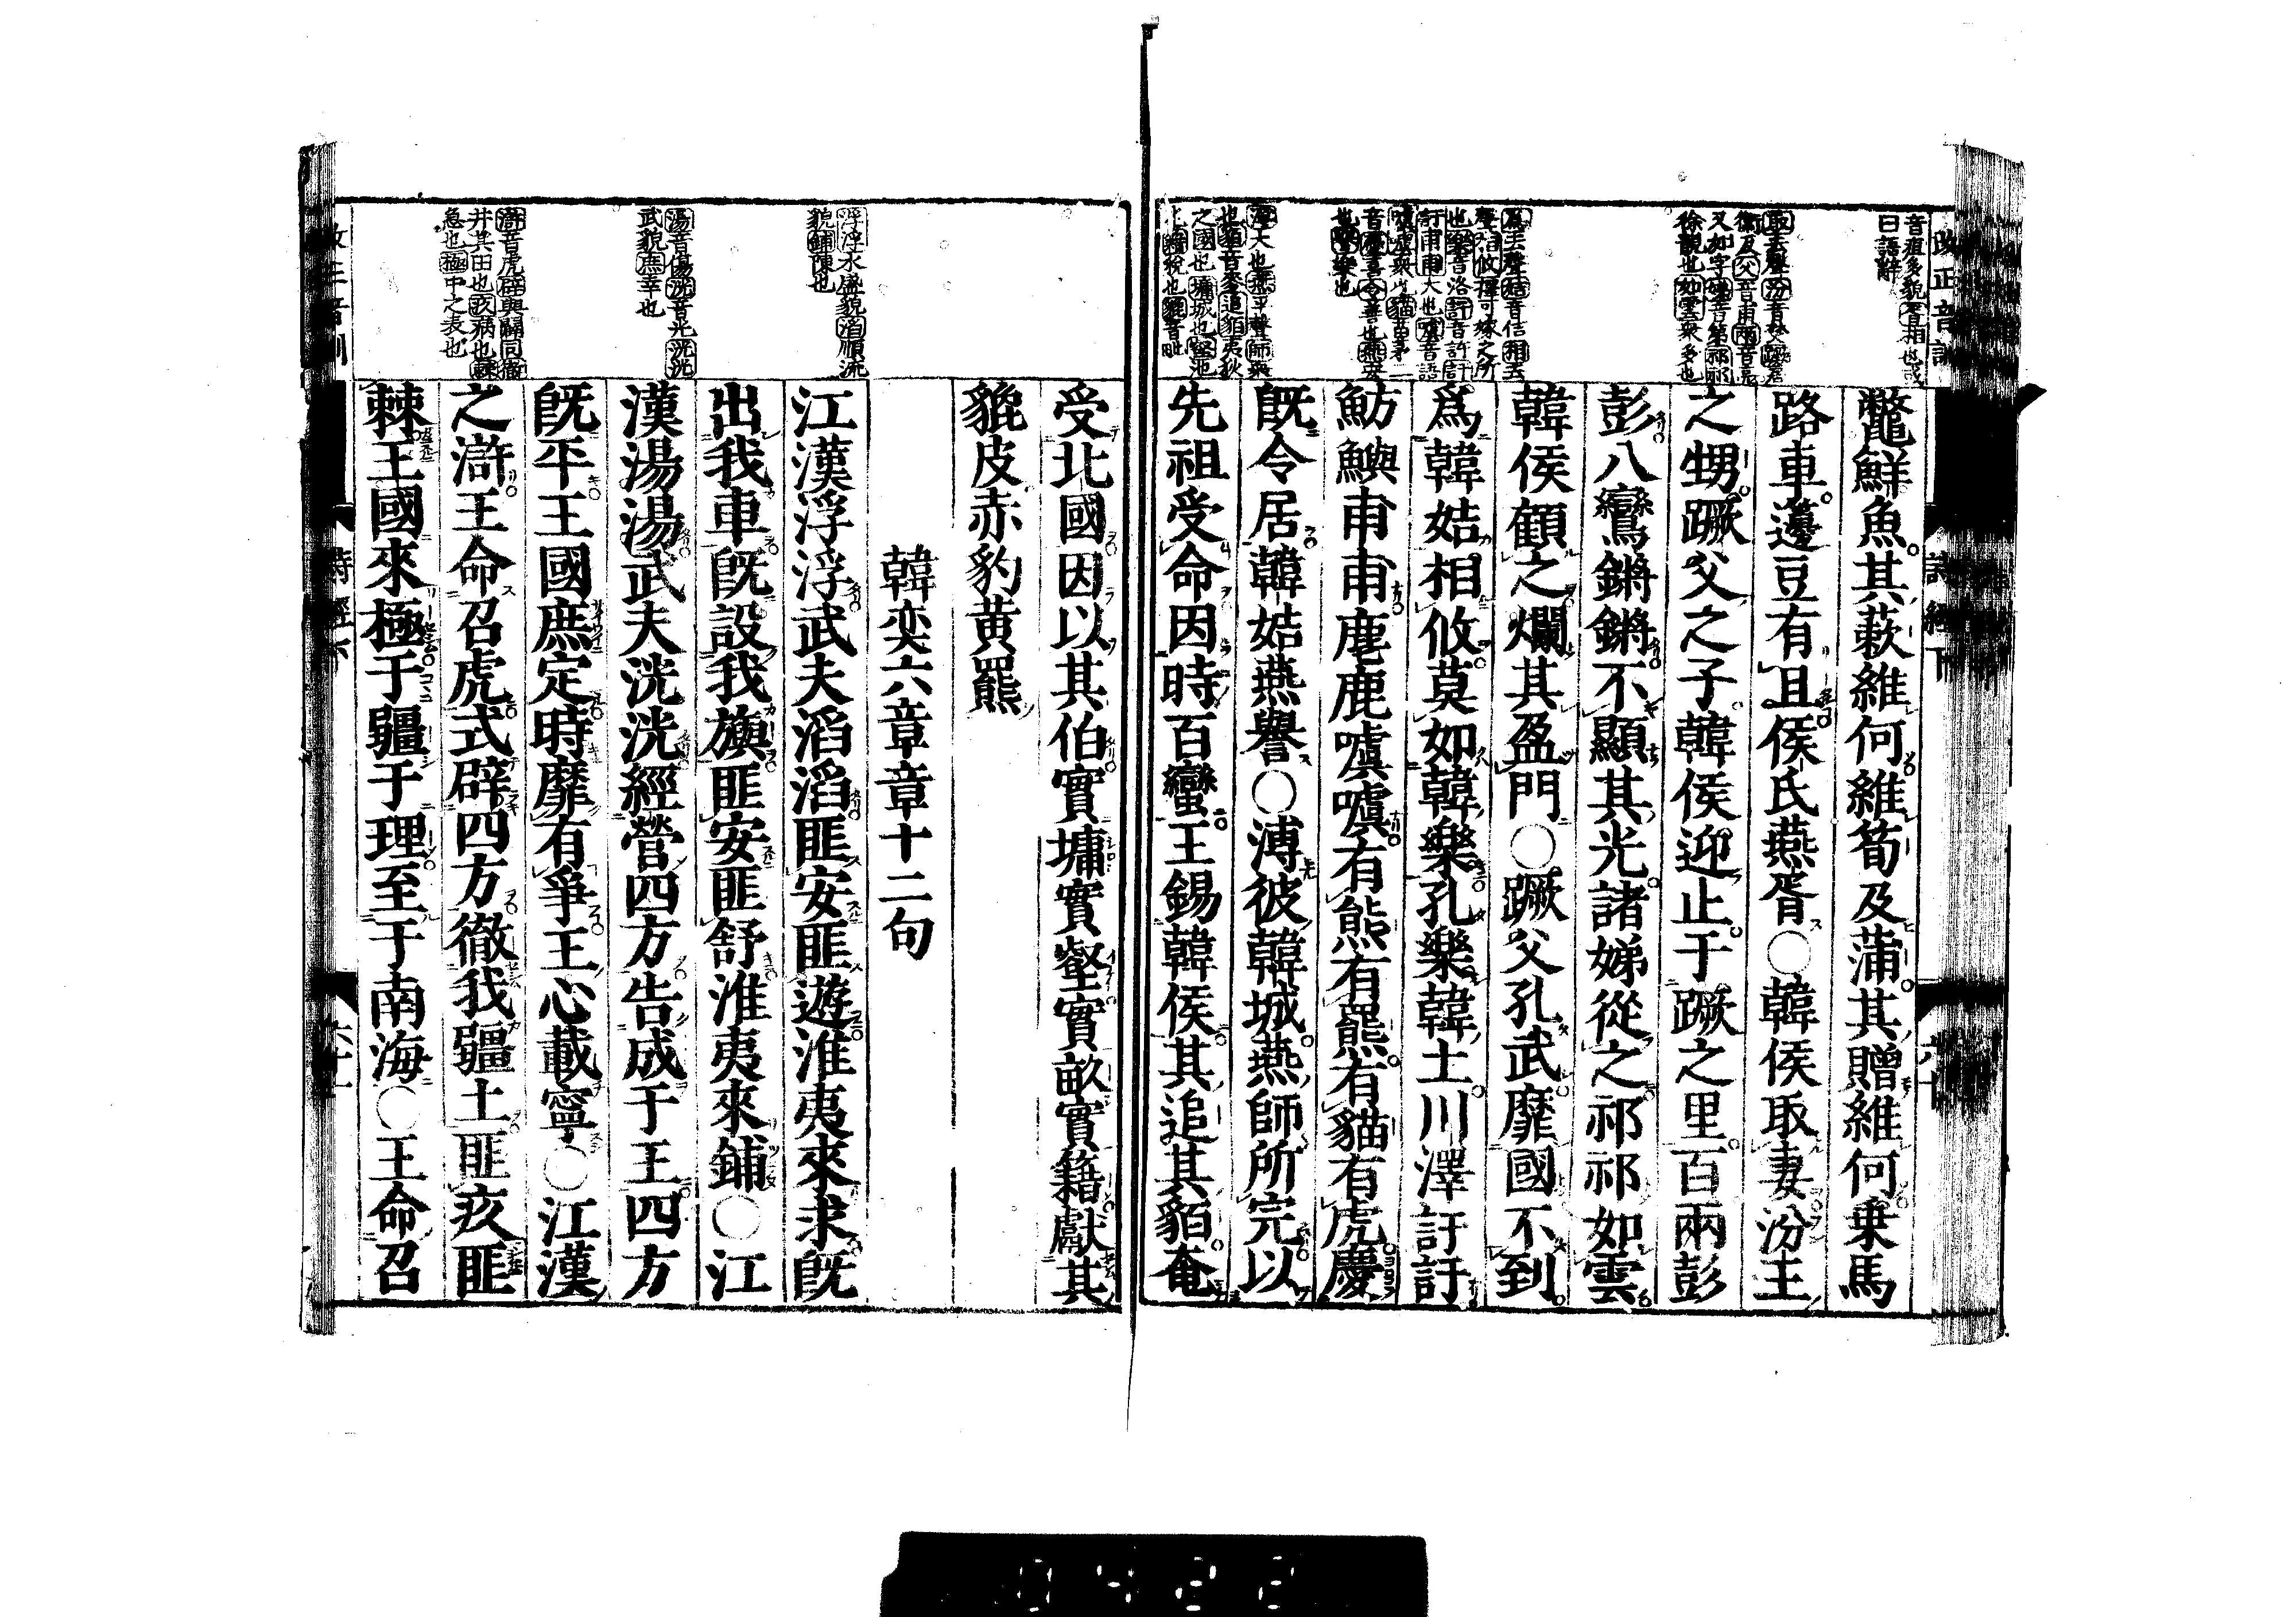 鼈鮮魚其蔌維何維筍及蒲其贈維何乗馬
路車籩豆有且侯氏燕胥○韓侯取妻汾王
之甥蹶父之子韓侯迎止于蹶之里百兩彭
彭八鸞鏘鏘不顯其光諸娣從之祁祁如雲
韓侯顧之爛其盈門○蹶父孔武靡國不到
爲韓姞相攸莫如韓樂孔樂韓土川澤訏訏
魴鱮甫甫麀鹿噳噳有熊有羆有貓有虎慶
既令居韓姞燕譽○溥彼韓城燕師所完以
先祖受命因時百蠻王錫韓侯其追其貊奄
受北國因以其伯實墉實壑實畝實籍獻其
貔皮赤豹黄羆
韓奕六章章十二句
江漢浮浮武夫滔滔匪安匪遊淮夷來求既
出我車既設我旟匪安匪舒淮夷來鋪○江
漢湯湯武夫洸洸經營四方告成于王四方
既平王國庶定時靡有爭王心載寧○江漢
之滸王命召虎式辟四方徹我疆土匪疚匪
棘王國來極于疆于理至于南海○王命召
浮浮水盛貌滔順流
貌鋪陳也
湯音傷洸音光洸洸
武貌庶幸也
滸音虎辟與闢同徹
井其田也疚病也棘
急也極中之表也
0422